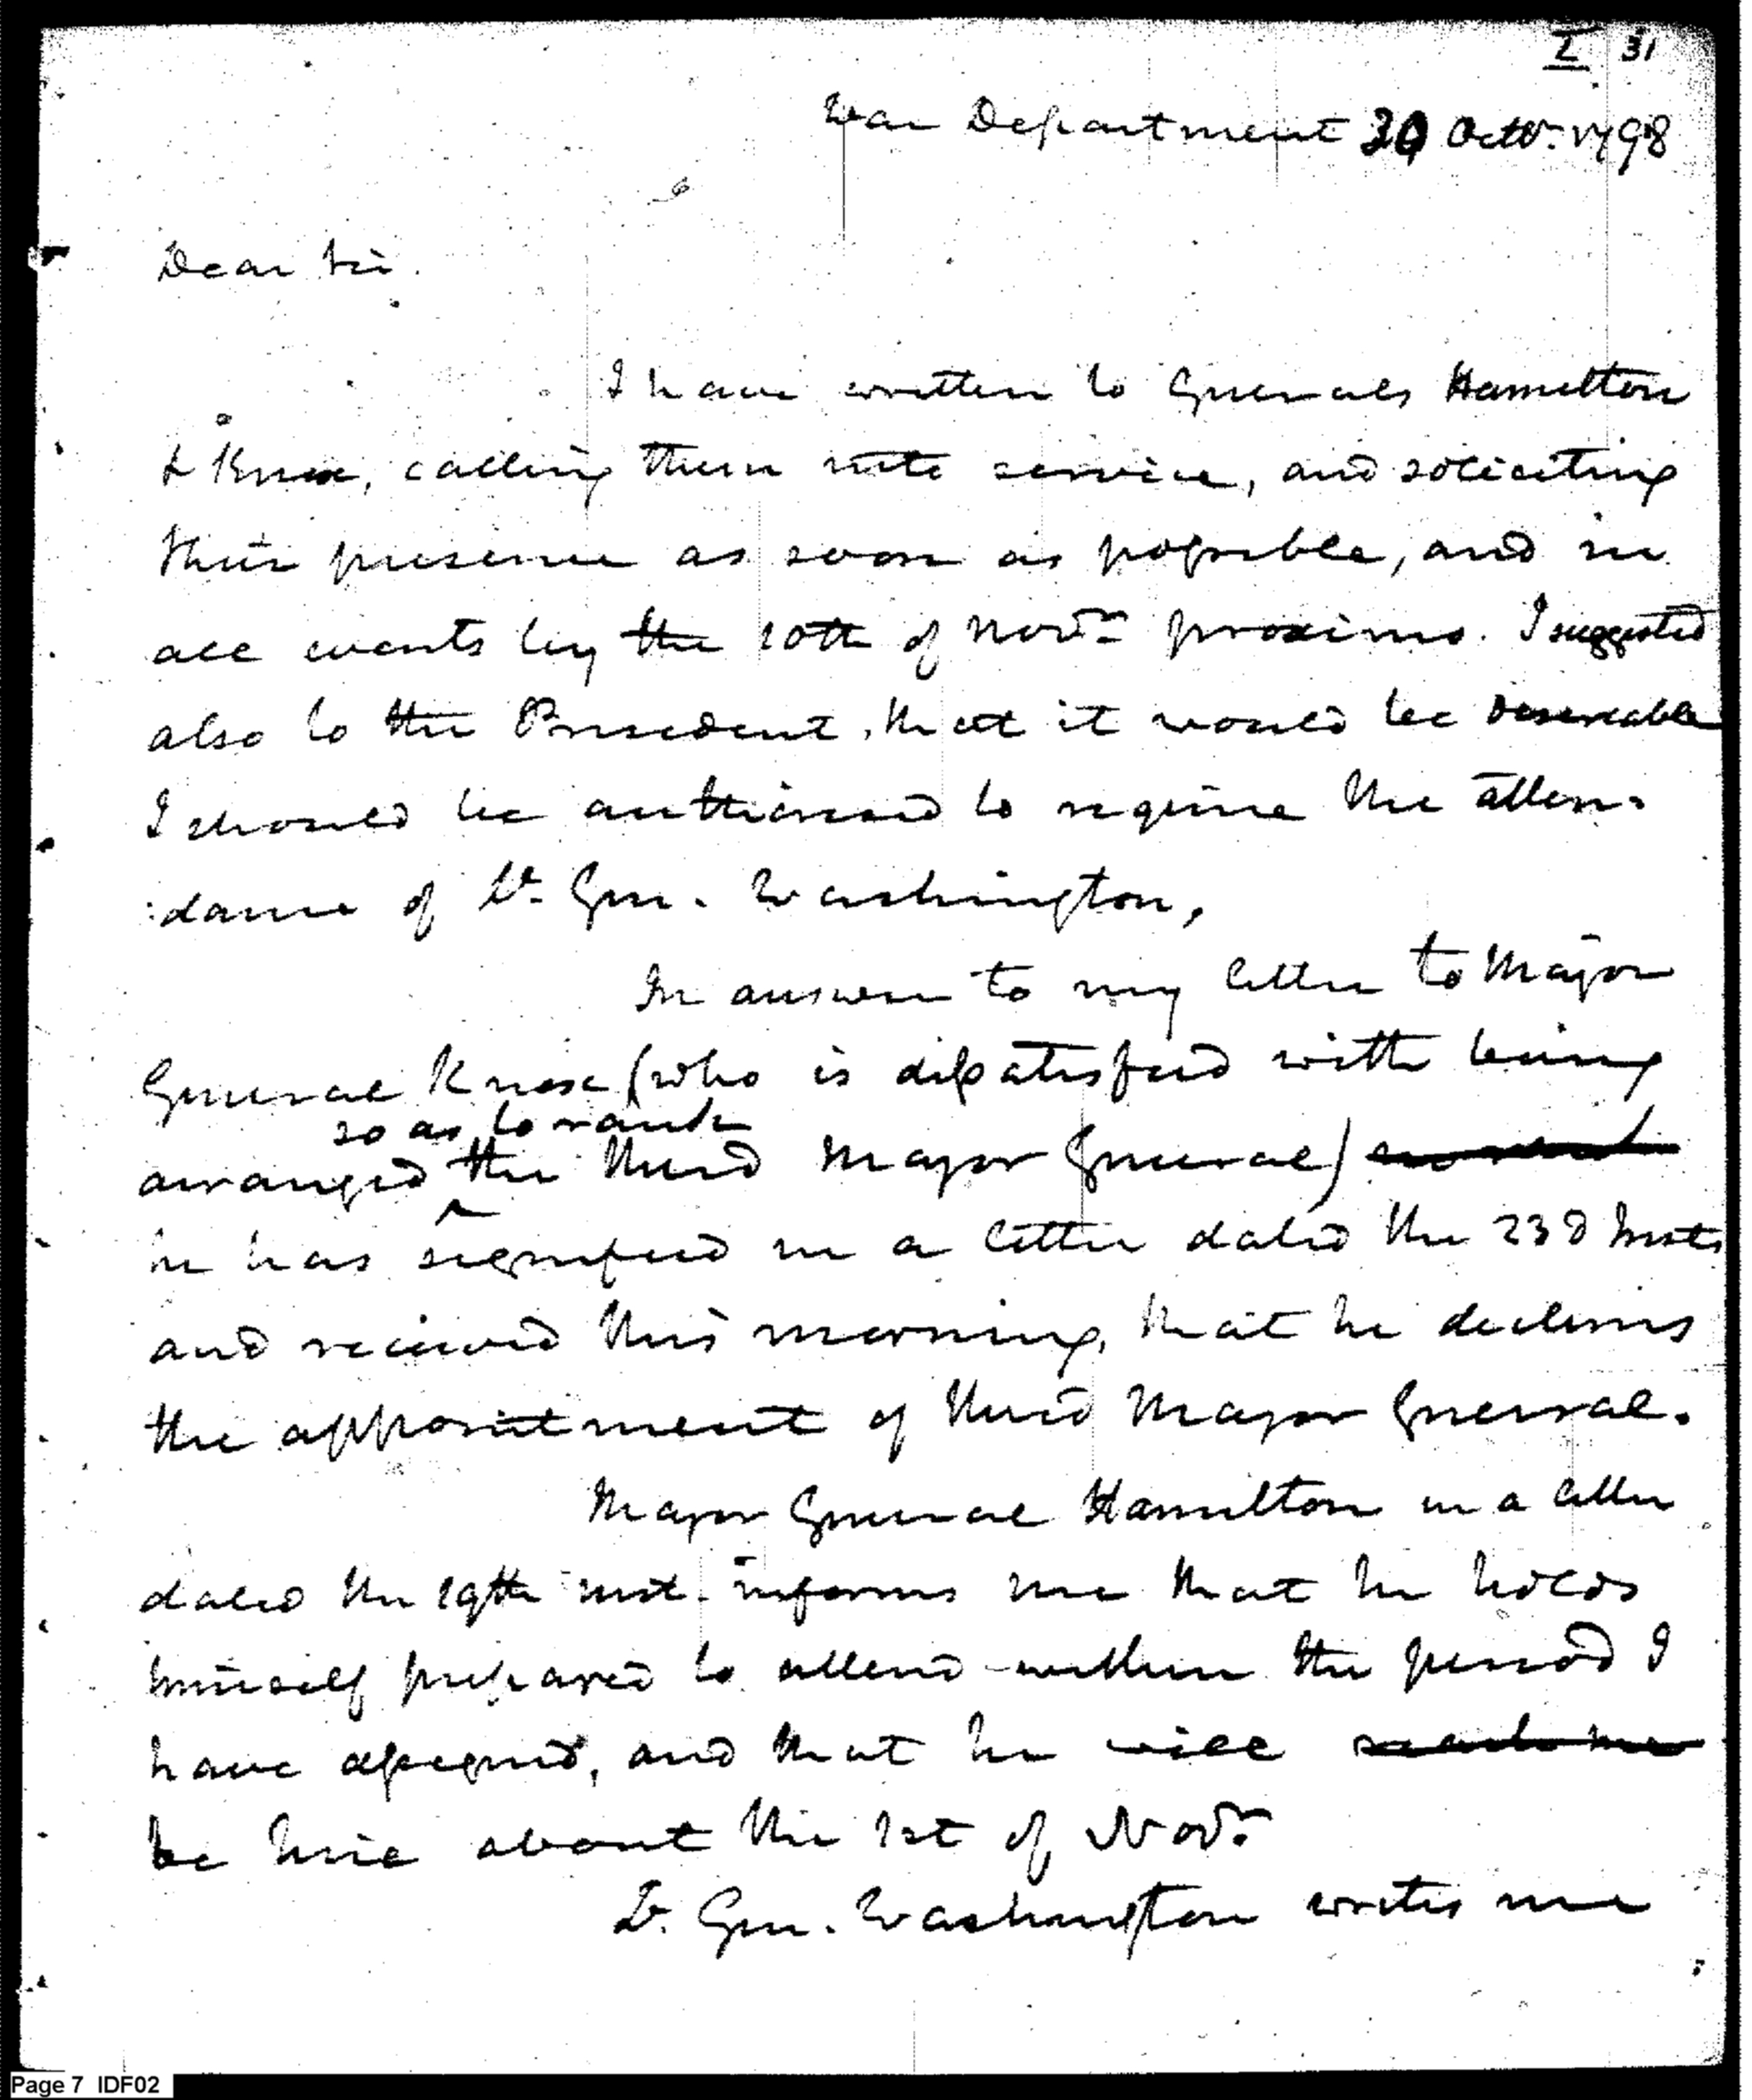 I 31
War Department 30 Octr. 1798
Dear Sir.
I have written to Generals Hamilton
& Knox, calling them into service, and soliciting
their presence as soon as possible, and in
all events by the 10th of Novr. proximo. I suggested
also to the President, that it would be desireable
I should be authorised to require the atten-
:dance of Lt. Gen. Washington,
In answer to my letter to Major
General Knox (who is dissatisfied with being
so as to rank
arranged ^ the third Major General)
he has signified in a letter dated the 23d Inst.
and received this morning, that he declines
the appointment of third Major General.
Major General Hamilton in a letter
dated the 19th inst. informs me that he holds
himself prepared to attend within the period I
have assigned, and that he will
be here about the 1st of Novr.
Lt. Gen. Washington writes me
Page 7 IDF02